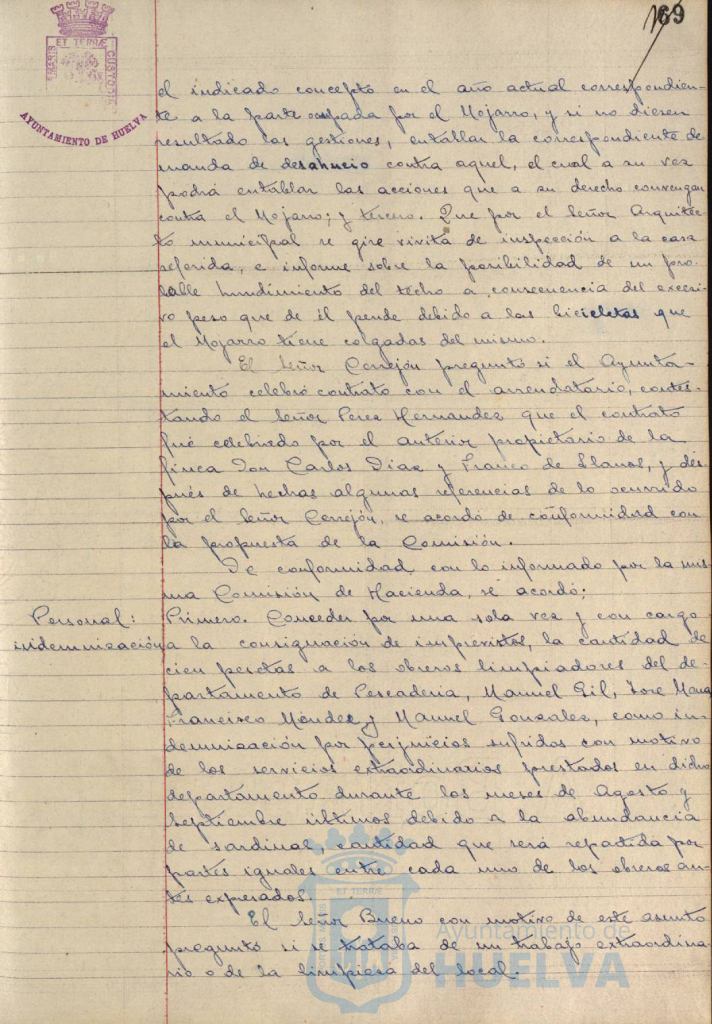 169
ET TERRÆ
MARIS
CUSTODIA
AYUNTAMIENTO DE HUELVA
el indicado concepto en el año actual correspondien-
te a la parte ocupada por el Mojarro, y si no diesen
resultado las gestiones, entablar la correspondiente de
manda de desahucio contra aquel, el cual a su vez
podrá entablar las acciones que a su derecho convengan
contra el Mojarro; y tercero. Que por el Señor Arquitec-
to municipal se gire visita de inspección a la casa
referida, e informe sobre la posibilidad de un pro-
bable hundimiento del techo a consecuencia del excesi-
vo peso que de él pende debido a las bicicletas que
el Mojarro tiene colgadas del mismo.
El Señor Cerrejón preguntó si el Ayunta-
miento celebró contrato con el arrendatario, contes-
tando el Señor Perez Hernandez que el contrato
fué celebrado por el anterior propietario de la
finca Don Carlos Diaz y Franco de Llanos, y des-
pués de hechas algunas referencias de lo ocurrido
por el Señor Cerrejón, se acordó de conformidad con
la propuesta de la Comisión.
De conformidad con lo informado por la mis-
ma Comisión de Hacienda, se acordó;
Personal:
indemnización
Primero. Conceder por una sola vez y con cargo
a la consignación de imprevistos, la cantidad de
cien pesetas a los obreros limpiadores del de-
partamento de Pescaderia, Manuel Gil, José Mora
Francisco Méndez y Manuel Gonzalez, como in-
demnización por perjuicios sufridos con motivo
de los servicios extraordinarios prestados en dicho
departamento durante los meses de Agosto y
Septiembre últimos debido a la abundancia
de sardinas, cantidad que será repartida por
partes iguales entre cada uno de los obreros an-
tes expresados.
El Señor Bueno con motivo de este asunto
preguntó si se trataba de un trabajo extraordina-
rio o de la limpieza del local.
ET TERRÆ
Ayuntamiento de
HUELVA